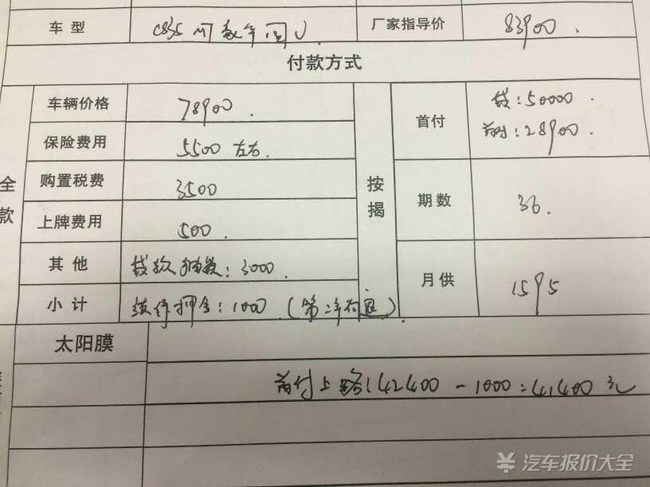 车型 CS35 厂家指导价 83900.
付款方式
全款
车辆价格 78900.
保险费用 5500 左右.
购置税费 3500
上牌费用 500.
其他 贷款 : 3000.
小计 续保押金: 1000 (第二年
按揭
首付 贷: 50000.
首付: 28900.
期数 36.
月供 1595
太阳膜
首付上路: 42400 - 1000 = 41400 元
汽车报价大全